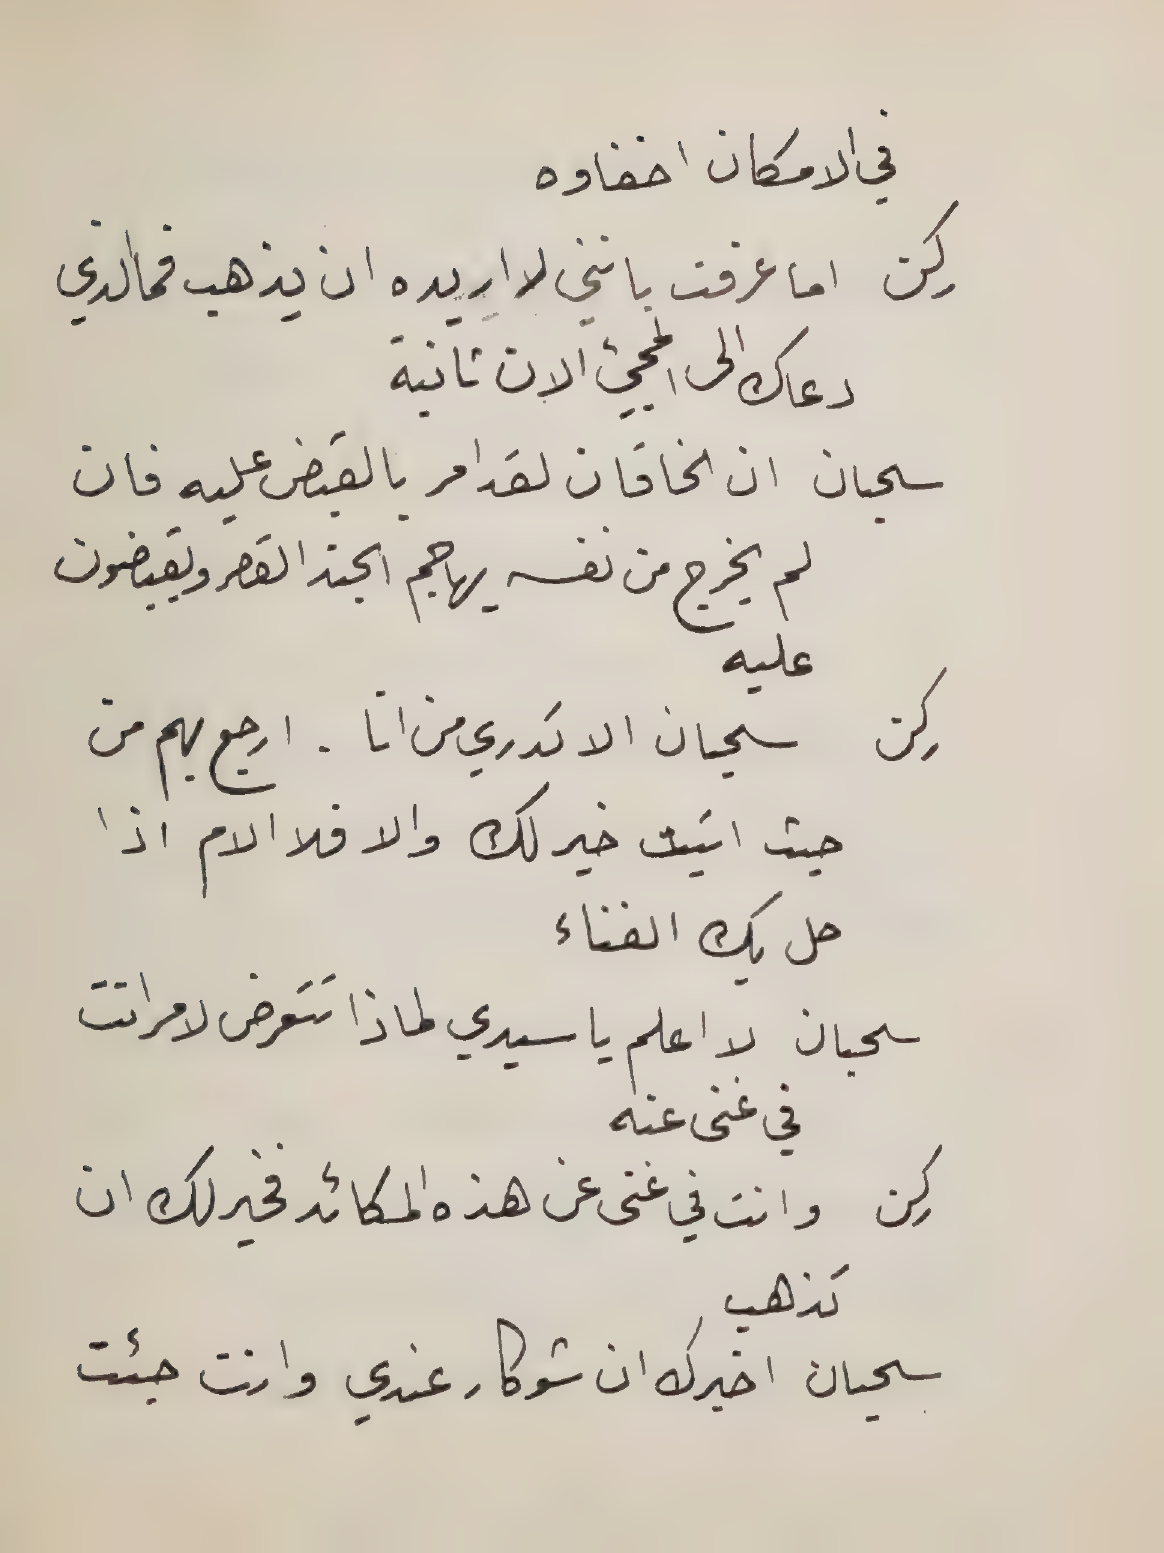 في الامكان اخفاوه
ركن اما عرفت بانني لا اريده ان يذهب فما الذي
دعاك الى المجيئ الان ثانية
سحبان ان الخاقان لقد امر بالقبض عليه فان
لم يخرج من نفسه يهاجم الجند القصر ويقبضون
عليه
ركن سحبان الا تدري من انا . ارجع بهم من
حيث اتيت خير لك والا فلا الام اذا
حل بك الفناء
سحبان لا اعلم يا سيدي لماذا تتعرض لامر انت
في غنى عنه
ركن وانت في غنى عن هذه المكائد فخير لك ان
تذهب
سحبان اخبرك ان شوكار عندي وانت جئت